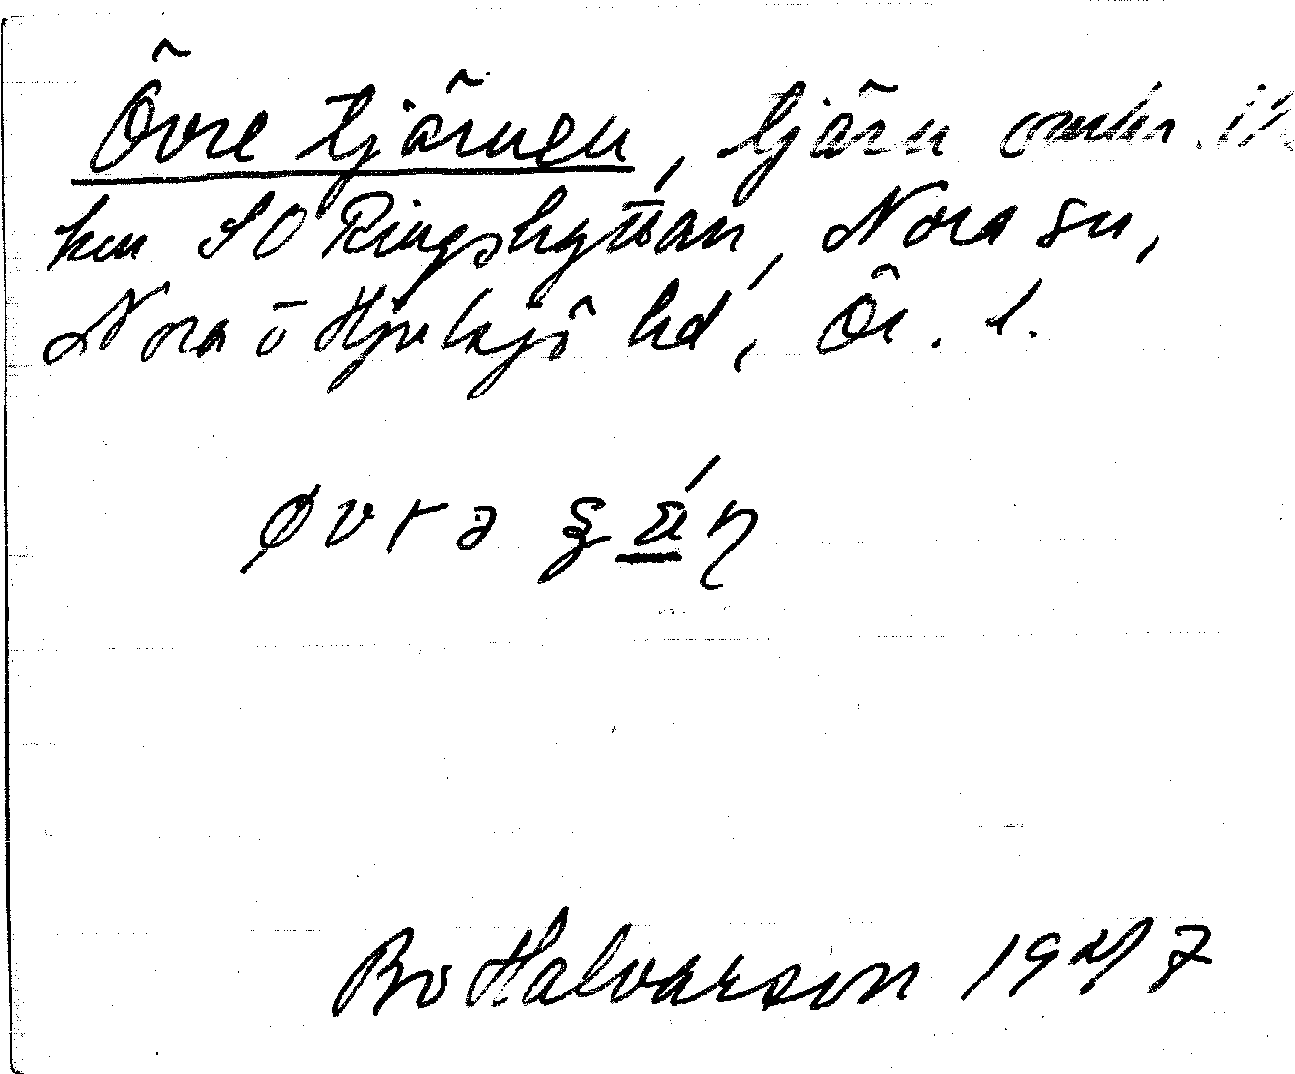 Övre tjärnen, tjärn
km SO Ringshyttan, Nora sn,
Nora o Hjulsjö hd, Ör. l.
øvrə
Bo Halvarson 19 7